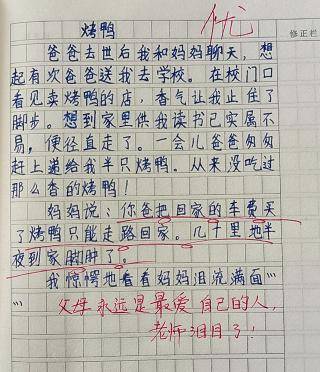 烤鸭
优
修正栏
爸爸去世后我和妈妈聊天，想
起有次爸爸送我去学校。在校门口
看见卖烤鸭的店，香气让我止住了
脚步。想到家里供我读书已实属不
易，便径直走了。一会儿爸爸匆匆
赶上递给我半只烤鸭。从来没吃过
那么香的烤鸭！
妈妈说：你爸把回家的车费买
了烤鸭只能走路回家。几十里地半
夜到家脚肿了。
我惊愕地看着妈妈泪流满面……
父母永远是最爱自己的人，
老师泪目了！